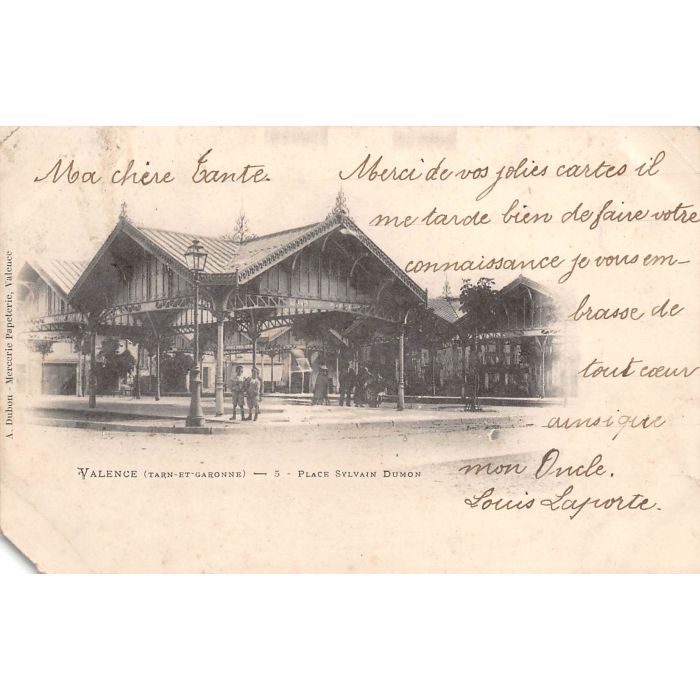 Ma chère Tante.
Merci de vos jolies cartes il
me tarde bien de faire votre
connaissance je vous em-
brasse de
tout cœur
ainsi que
mon Oncle.
Louis Laporte.
A. Dubon - Mercerie Papeterie, Valence
VALENCE (TARN-ET-GARONNE) — 5 - PLACE SYLVAIN DUMON